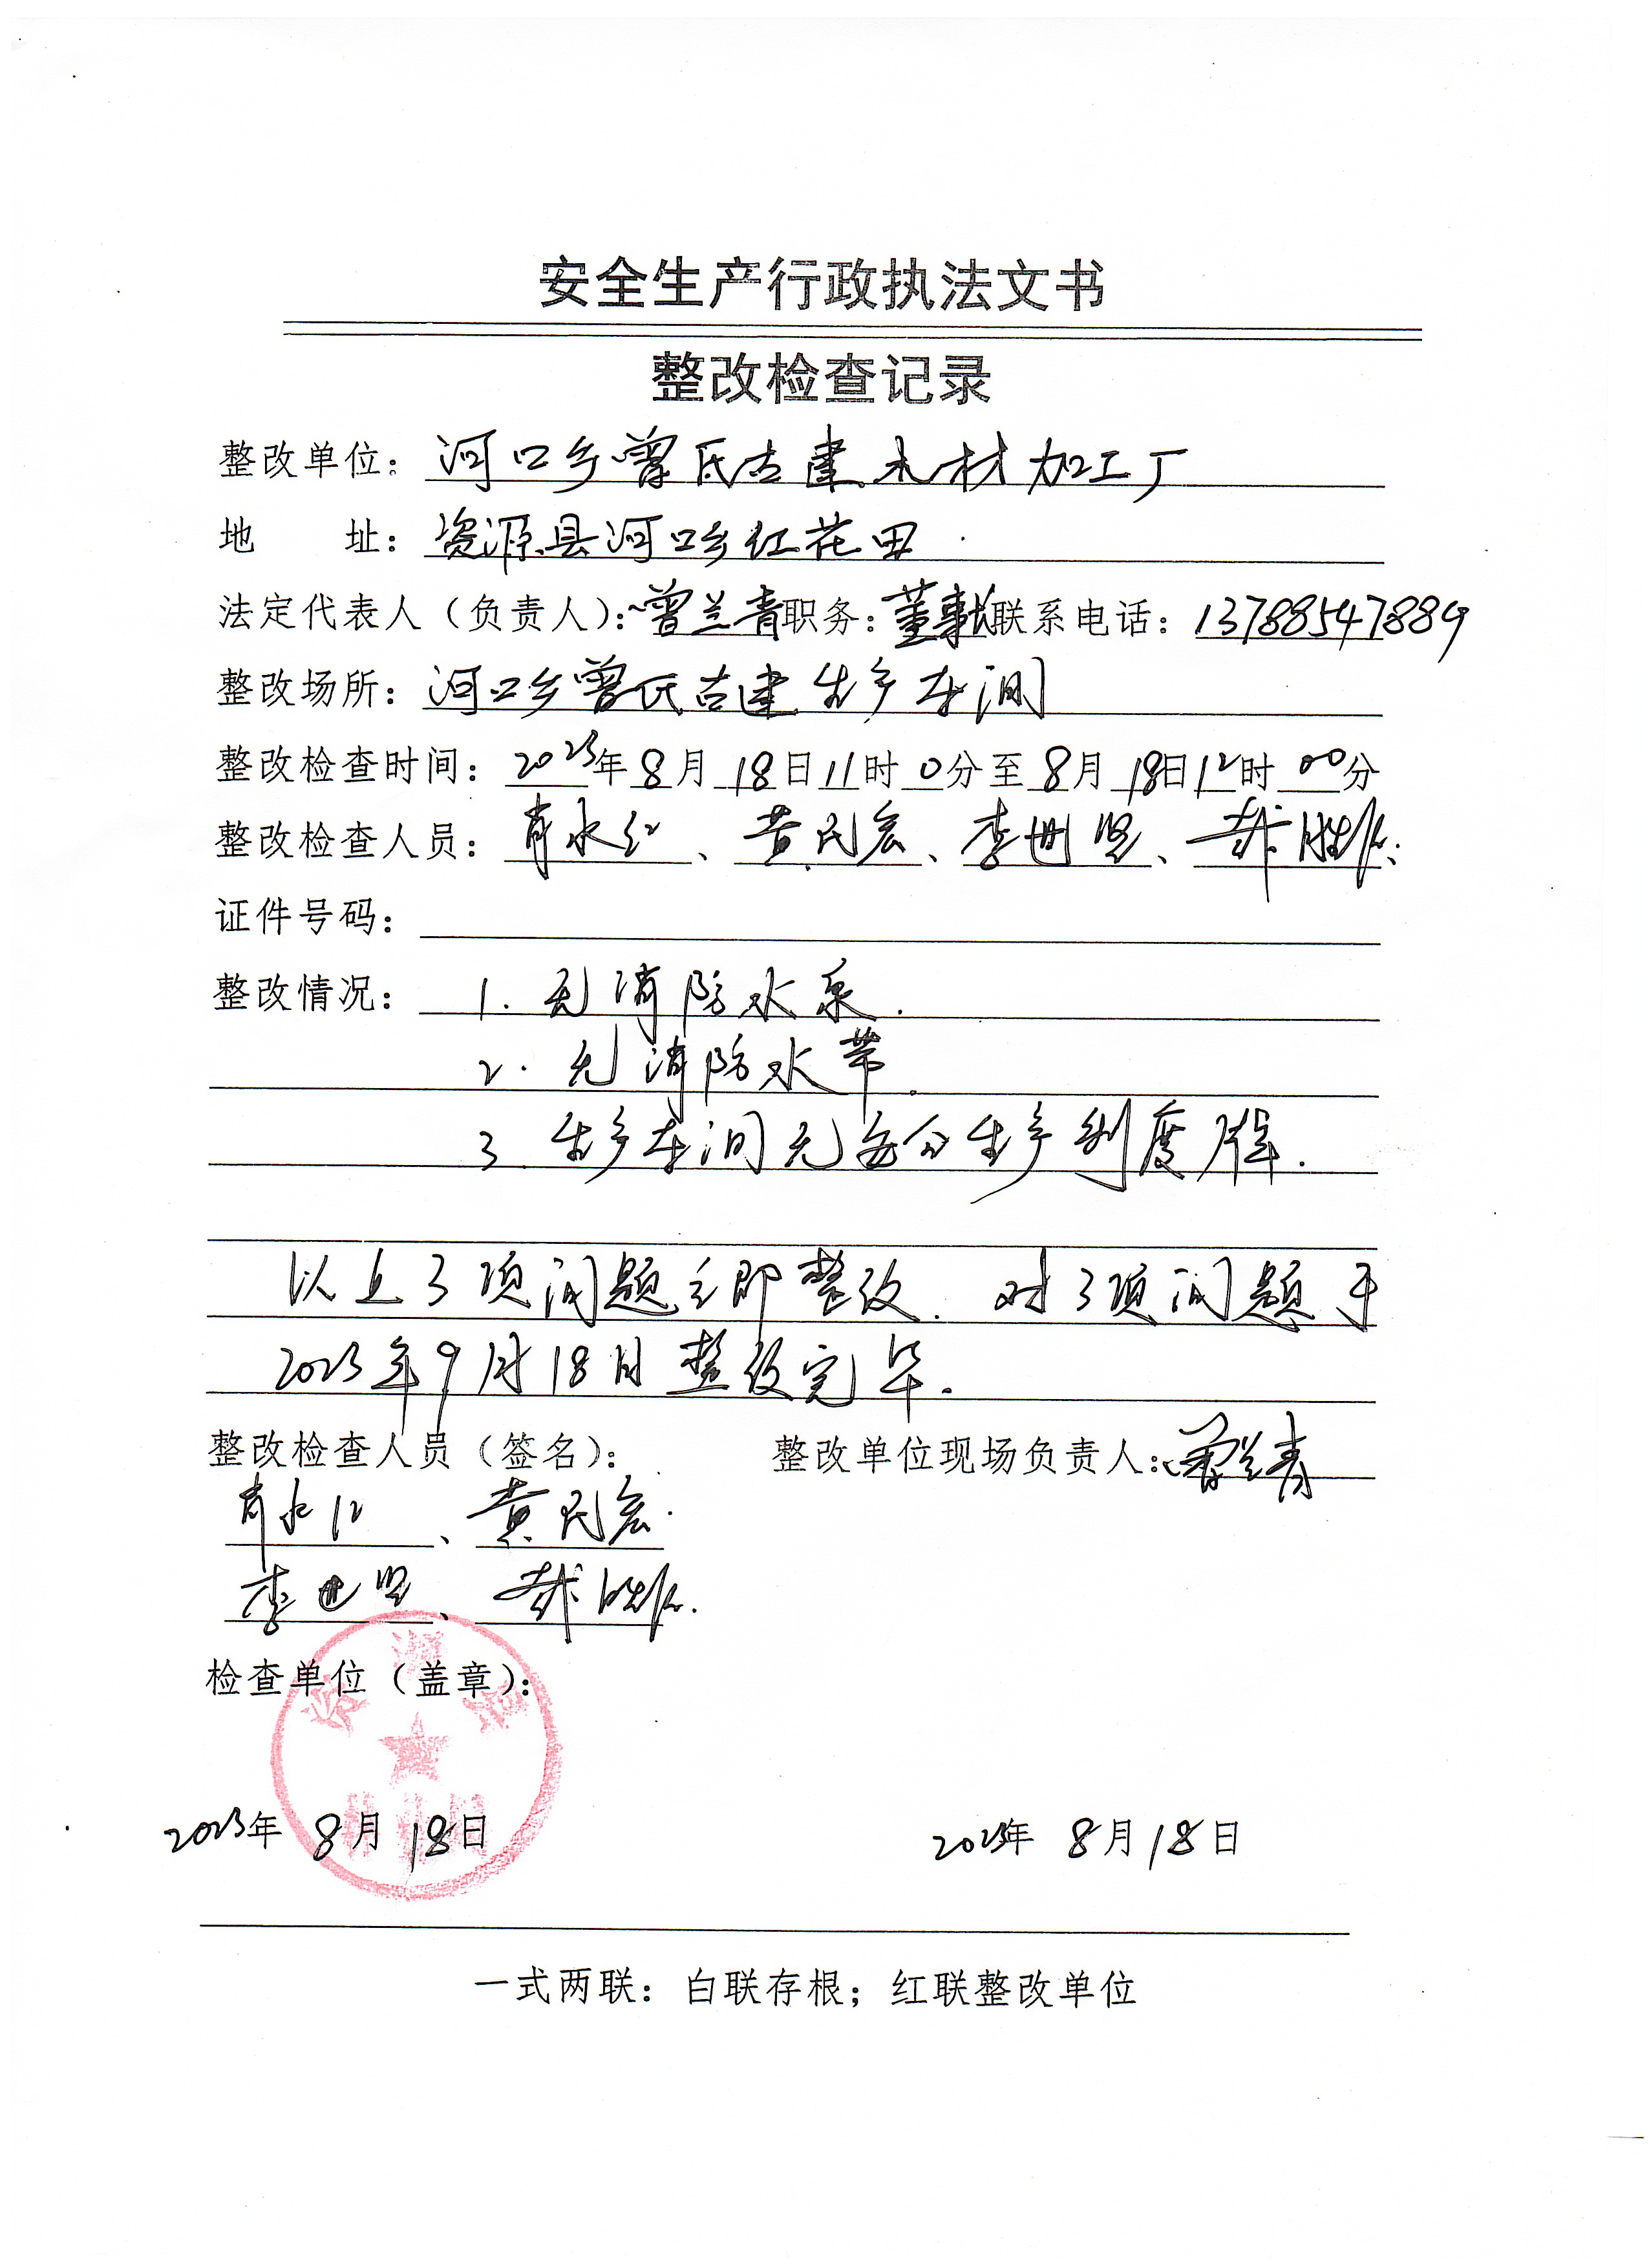 安全生产行政执法文书
整改检查记录
整改单位：河口乡曾氏古建木材加工厂
地　　址：资源县河口乡红花田
法定代表人（负责人）：曾兰青职务：董事长联系电话：13788547889
整改场所：河口乡曾氏古建生产车间
整改检查时间：2023年8月18日11时0分至8月18日12时00分
整改检查人员：肖永红、黄民宏、李世坚、
证件号码：
整改情况：1.无消防水泵.
2.无消防水带.
3.生产车间无安全生产制度牌.
以上3项问题立即整改.对3项问题于
2023年9月18日整改完毕.
整改检查人员（签名）：　整改单位现场负责人：曾兰青
肖永红、黄民宏
李世坚、
检查单位（盖章）：
2023年8月18日　2023年8月18日
一式两联：白联存根；红联整改单位